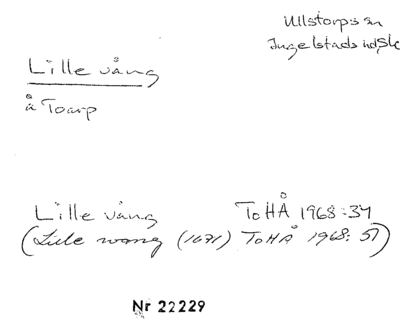 Ullstorps sn
Ingelstads hd, Sk
Lille vång
å Toarp
Lille vång ToHÅ 1968:34
(Lille wong (1671) ToHÅ 1968: 51)
Nr 22229